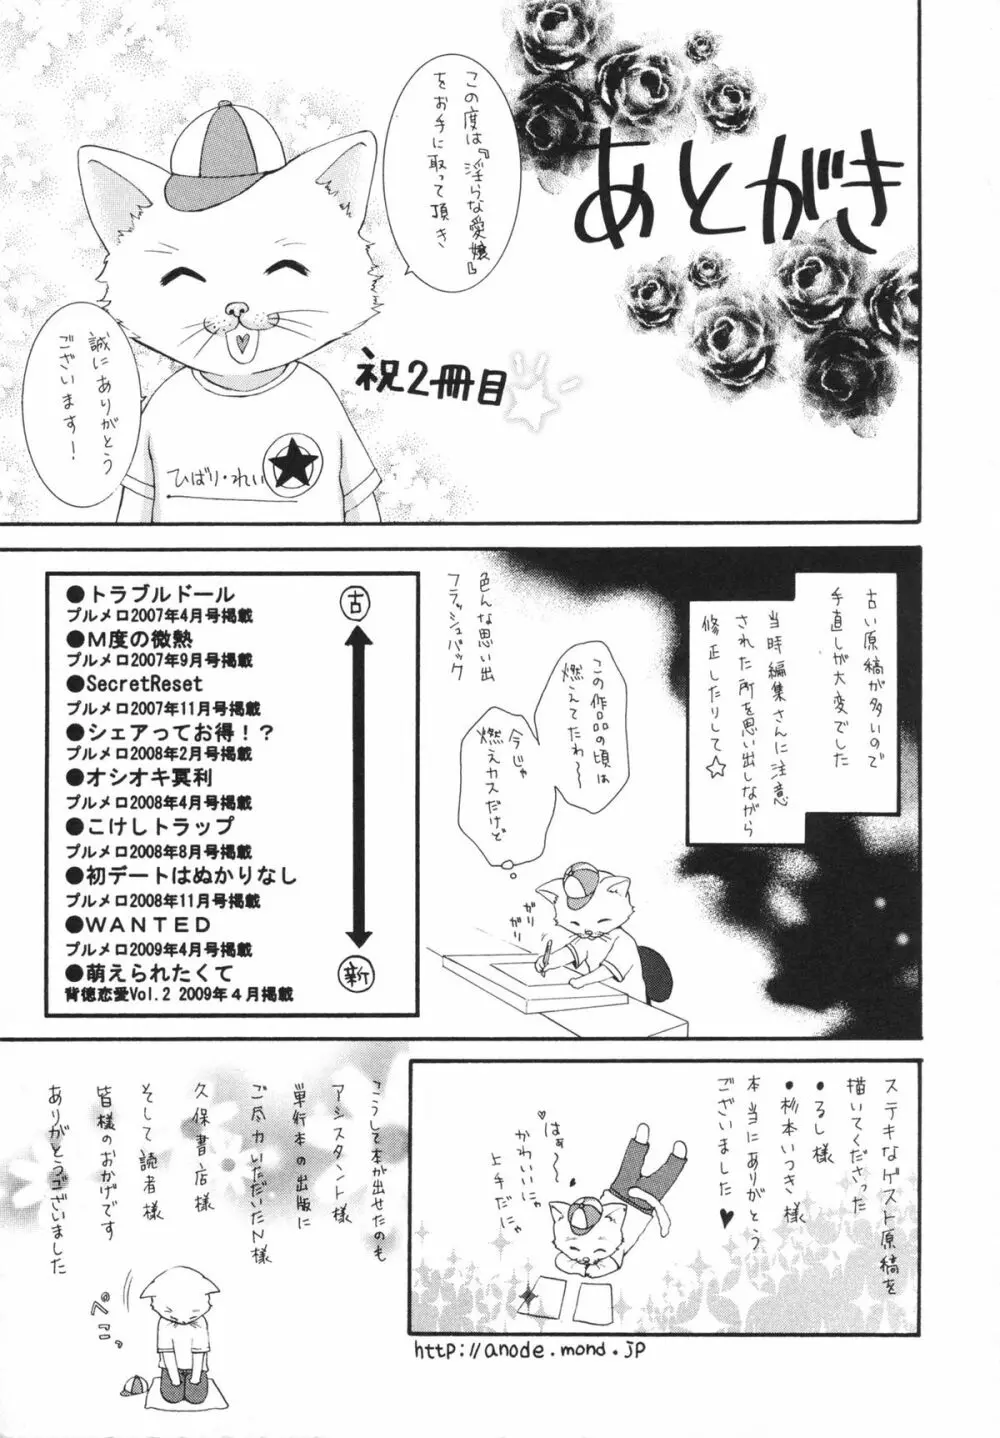 あとがき
この度は『淫らな愛嬢』
をお手に取って頂き
誠にありがとう
ございます！
祝2冊目
ひばり・れい
古い原稿が多いので
手直しが大変でした
当時編集さんに注意
された所を思い出しながら
修正したりして☆
色んな思い出
フラッシュバック
この作品の頃は
燃えてたわ〜
今じゃ
燃えカスだけど
ガリ
ガリ
古
●トラブルドール
プルメロ2007年4月号掲載
●Ｍ度の微熱
プルメロ2007年9月号掲載
●SecretReset
プルメロ2007年11月号掲載
●シェアってお得！？
プルメロ2008年2月号掲載
●オシオキ冥利
プルメロ2008年4月号掲載
●こけしトラップ
プルメロ2008年8月号掲載
●初デートはぬかりなし
プルメロ2008年11月号掲載
●ＷＡＮＴＥＤ
プルメロ2009年4月号掲載
●萌えられたくて
背徳恋愛Vol.2 2009年４月掲載
新
ステキなゲスト原稿を
描いてくださった
●るし様
●杉本いつき様
本当にありがとう
ございました♥
はぁ〜
かわいいにゃ
上手だにゃ
http://anode.mond.jp
こうして本が出せたのも
アシスタント様
単行本の出版に
ご尽力いただいたN様
久保書店様
そして読者様
皆様のおかげです
ありがとうございました
ぺこっ